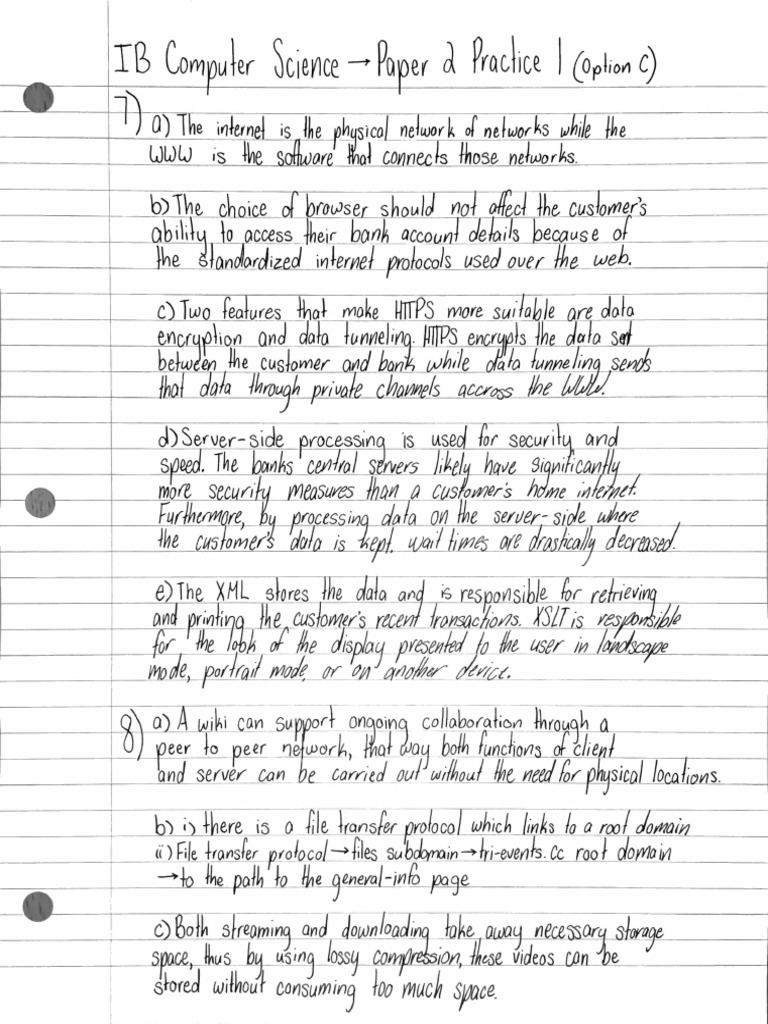 IB Computer Science → Paper 2 Practice 1 (Option C)
7) a) The internet is the physical network of networks while the
WWW is the software that connects those networks.
b) The choice of browser should not affect the customer's
ability to access their bank account details because of
the standardized internet protocols used over the web.
c) Two features that make HTTPS more suitable are data
encryption and data tunneling. HTTPS encrypts the data set
between the customer and bank while data tunneling sends
that data through private channels accross the WWW.
d) Server-side processing is used for security and
speed. The banks central servers likely have significantly
more security measures than a customer's home internet.
Furthermore, by processing data on the server-side where
the customer's data is kept, wait times are drastically decreased.
e) The XML stores the data and is responsible for retrieving
and printing the customer's recent transactions. XSLT is responsible
for the look of the display presented to the user in landscape
mode, portrait mode, or on another device.
8) a) A wiki can support ongoing collaboration through a
peer to peer network, that way both functions of client
and server can be carried out without the need for physical locations.
b) i) there is a file transfer protocol which links to a root domain
ii) File transfer protocol → files subdomain → tri-events.cc root domain
→ to the path to the general-info page
c) Both streaming and downloading take away necessary storage
space, thus by using lossy compression, these videos can be
stored without consuming too much space.